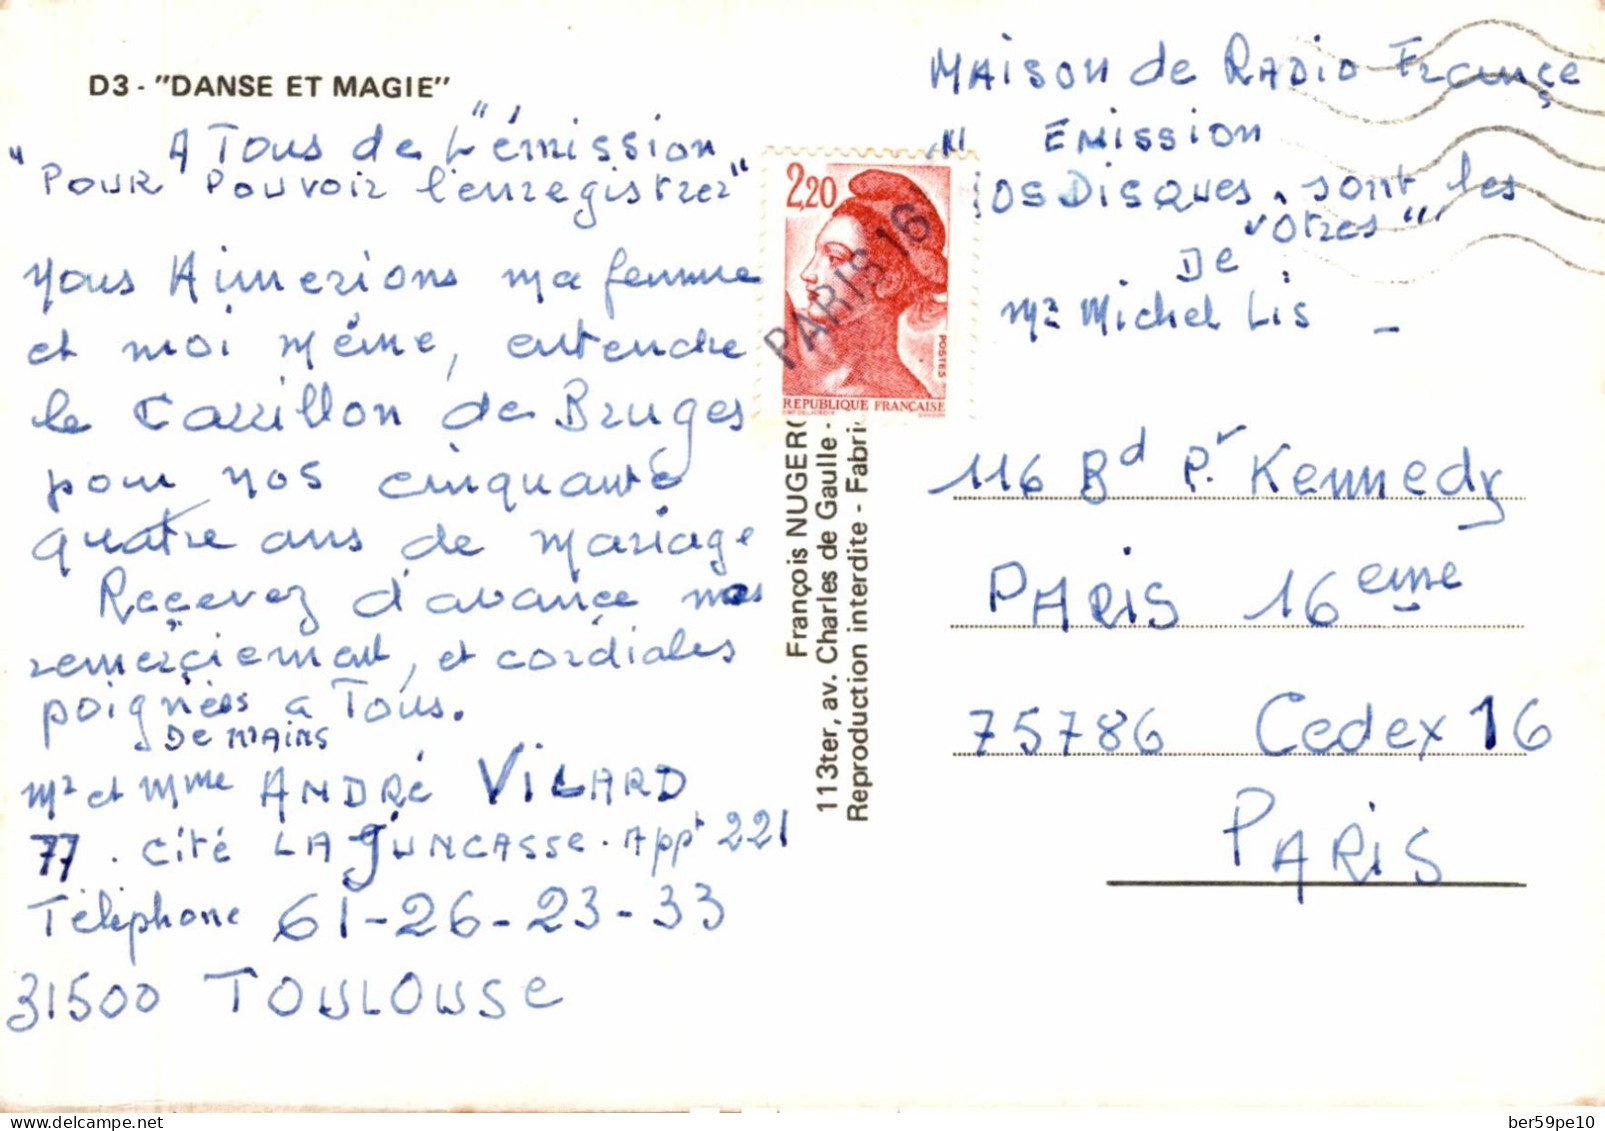 D3 - "DANSE ET MAGIE"
A Tous de L'émission
"POUR POUVOIR l'enregistrer"
Nous Aimerions ma femme
et moi même, entendre
le Carrillon de Bruges
pour nos cinquante
quatre ans de mariage
Reçevez d'avance nos
remerçiement, et cordiales
poignées a Tous.
De mains
Mr et Mme ANDRé VILARD
77. Cité LA JUNCASSE. Appt 221
Téléphone 61-26-23-33
31500 TOULOUSE
2,20
POSTES
REPUBLIQUE FRANÇAISE
PARIS 16
François NUGERO
113ter, av. Charles de Gaulle -
Reproduction interdite - Fabri
MAISON de RADIO Françe
EMISSION
OS DISQUES, sont les
vôtres"
De :
Mr Michel Lis -
116 Bd P.r Kennedy
PARIS 16 eme
75786 Cedex 16
PARIS
delcampe.net
ber59pe10